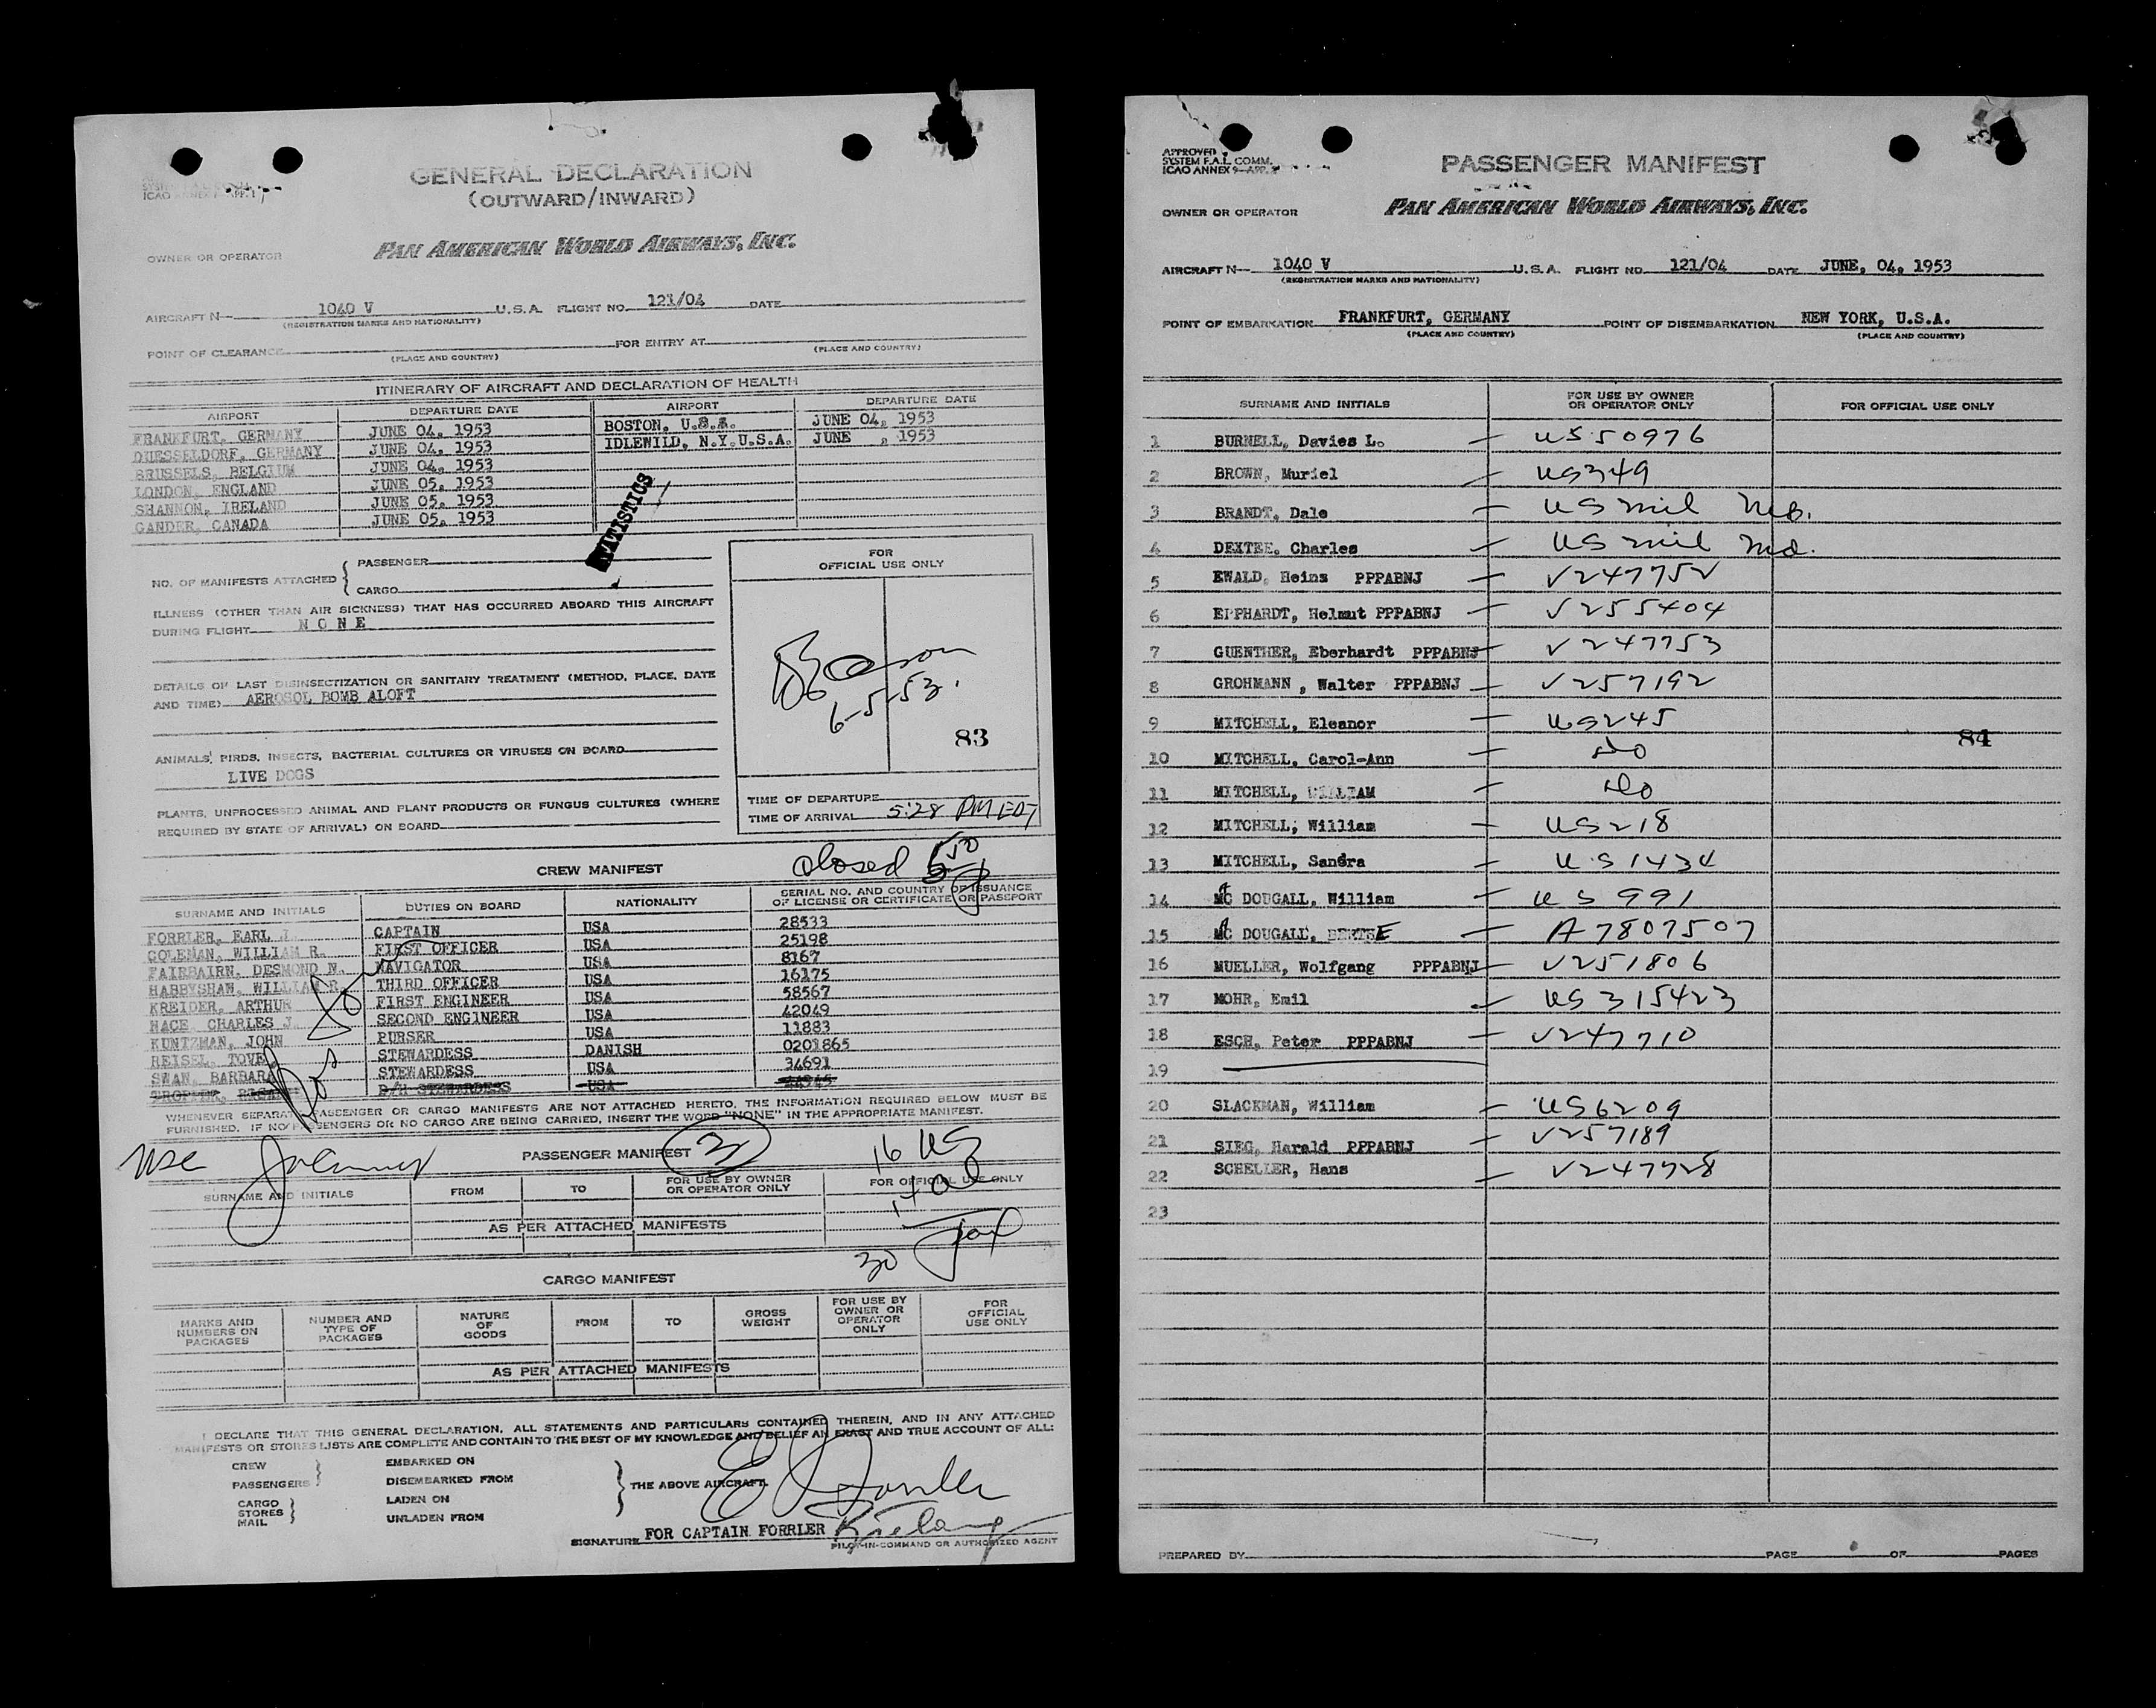 GENERAL DECLARATION
(OUTWARD/INWARD)
PAN AMERICAN WORLD AIRWAYS, INC.
OWNER OR OPERATOR
AIRCRAFT N— 1040 V U.S.A. FLIGHT NO. 121/04 DATE
(REGISTRATION MARKS AND NATIONALITY)
POINT OF CLEARANCE FOR ENTRY AT
(PLACE AND COUNTRY) (PLACE AND COUNTRY)
ITINERARY OF AIRCRAFT AND DECLARATION OF HEALTH
AIRPORT DEPARTURE DATE AIRPORT DEPARTURE DATE
FRANKFURT, GERMANY JUNE 04, 1953 BOSTON, U.S.A. JUNE 04, 1953
DUESSELDORF, GERMANY JUNE 04, 1953 IDLEWILD, N.Y.U.S.A. JUNE , 1953
BRUSSELS, BELGIUM JUNE 04, 1953
LONDON, ENGLAND JUNE 05, 1953
SHANNON, IRELAND JUNE 05, 1953
GANDER, CANADA JUNE 05, 1953
STATISTICS
NO. OF MANIFESTS ATTACHED { PASSENGER
CARGO
FOR
OFFICIAL USE ONLY
ILLNESS (OTHER THAN AIR SICKNESS) THAT HAS OCCURRED ABOARD THIS AIRCRAFT
DURING FLIGHT N O N E
6-5-53.
83
DETAILS OF LAST DISINSECTIZATION OR SANITARY TREATMENT (METHOD, PLACE, DATE
AND TIME) AEROSOL BOMB ALOFT
ANIMALS, BIRDS, INSECTS, BACTERIAL CULTURES OR VIRUSES ON BOARD
LIVE DOGS
PLANTS, UNPROCESSED ANIMAL AND PLANT PRODUCTS OR FUNGUS CULTURES (WHERE
REQUIRED BY STATE OF ARRIVAL) ON BOARD
TIME OF DEPARTURE
TIME OF ARRIVAL 5:28 PM EDT
closed 5 50
CREW MANIFEST
SURNAME AND INITIALS DUTIES ON BOARD NATIONALITY SERIAL NO. AND COUNTRY OF ISSUANCE
OF LICENSE OR CERTIFICATE OR PASSPORT
FORRLER, EARL J. CAPTAIN USA 28533
COLEMAN, WILLIAM R. FIRST OFFICER USA 25198
FAIRBAIRN, DESMOND N. NAVIGATOR USA 8167
HABBYSHAW, WILLIAM R. THIRD OFFICER USA 16175
KREIDER, ARTHUR FIRST ENGINEER USA 58567
HACE, CHARLES J. SECOND ENGINEER USA 42049
KUNTZMAN, JOHN PURSER USA 11883
REISEL, TOVE STEWARDESS DANISH 0201865
SWAN, BARBARA STEWARDESS USA 34691
D/H STEWARDESS USA
WHENEVER SEPARATE PASSENGER OR CARGO MANIFESTS ARE NOT ATTACHED HERETO, THE INFORMATION REQUIRED BELOW MUST BE
FURNISHED. IF NO PASSENGERS OR NO CARGO ARE BEING CARRIED, INSERT THE WORD "NONE" IN THE APPROPRIATE MANIFEST.
PASSENGER MANIFEST 3 16 US
SURNAME AND INITIALS FROM TO FOR USE BY OWNER
OR OPERATOR ONLY FOR OFFICIAL USE ONLY
AS PER ATTACHED MANIFESTS
30
CARGO MANIFEST
MARKS AND
NUMBERS ON
PACKAGES NUMBER AND
TYPE OF
PACKAGES NATURE
OF
GOODS FROM TO GROSS
WEIGHT FOR USE BY
OWNER OR
OPERATOR
ONLY FOR
OFFICIAL
USE ONLY
AS PER ATTACHED MANIFESTS
I DECLARE THAT THIS GENERAL DECLARATION, ALL STATEMENTS AND PARTICULARS CONTAINED THEREIN, AND IN ANY ATTACHED
MANIFESTS OR STORES LISTS ARE COMPLETE AND CONTAIN TO THE BEST OF MY KNOWLEDGE AND BELIEF AN EXACT AND TRUE ACCOUNT OF ALL:
CREW EMBARKED ON
PASSENGERS DISEMBARKED FROM THE ABOVE AIRCRAFT.
CARGO LADEN ON
STORES
MAIL UNLADEN FROM
SIGNATURE FOR CAPTAIN FORRLER
PILOT-IN-COMMAND OR AUTHORIZED AGENT
APPROVED
SYSTEM F.A.L. COMM.
ICAO ANNEX 9—APP.
PASSENGER MANIFEST
OWNER OR OPERATOR PAN AMERICAN WORLD AIRWAYS, INC.
AIRCRAFT N— 1040 V U.S.A. FLIGHT NO. 121/04 DATE JUNE, 04, 1953
(REGISTRATION MARKS AND NATIONALITY)
POINT OF EMBARKATION FRANKFURT, GERMANY POINT OF DISEMBARKATION NEW YORK, U.S.A.
(PLACE AND COUNTRY) (PLACE AND COUNTRY)
SURNAME AND INITIALS FOR USE BY OWNER
OR OPERATOR ONLY FOR OFFICIAL USE ONLY
1 BURNELL, Davies L. — US 50976
2 BROWN, Muriel — US349
3 BRANDT, Dale — US mil
4 DEXTEE. Charles — US mil
5 EWALD, Heinz PPPABNJ — V247752
6 EPPHARDT, Helmut PPPABNJ — V255404
7 GUENTHER, Eberhardt PPPABNJ — V247753
8 GROHMANN , Walter PPPABNJ — V257192
9 MITCHELL, Eleanor — US245
10 MITCHELL, Carol-Ann — do
11 MITCHELL, WILLIAM — do
12 MITCHELL, William — US218
13 MITCHELL, Sandra — US1434
14 MC DOUGALL, William — US 991
15 MC DOUGALL, — A7807507
16 MUELLER, Wolfgang PPPABNJ — V251806
17 MOHR, Emil — US315423
18 ESCH, Peter PPPABNJ — V247710
19
20 SLACKMAN, William — US6209
21 SIEG, Harald PPPABNJ — V257189
22 SCHELLER, Hans — V247728
23
84
PREPARED BY PAGE OF PAGES